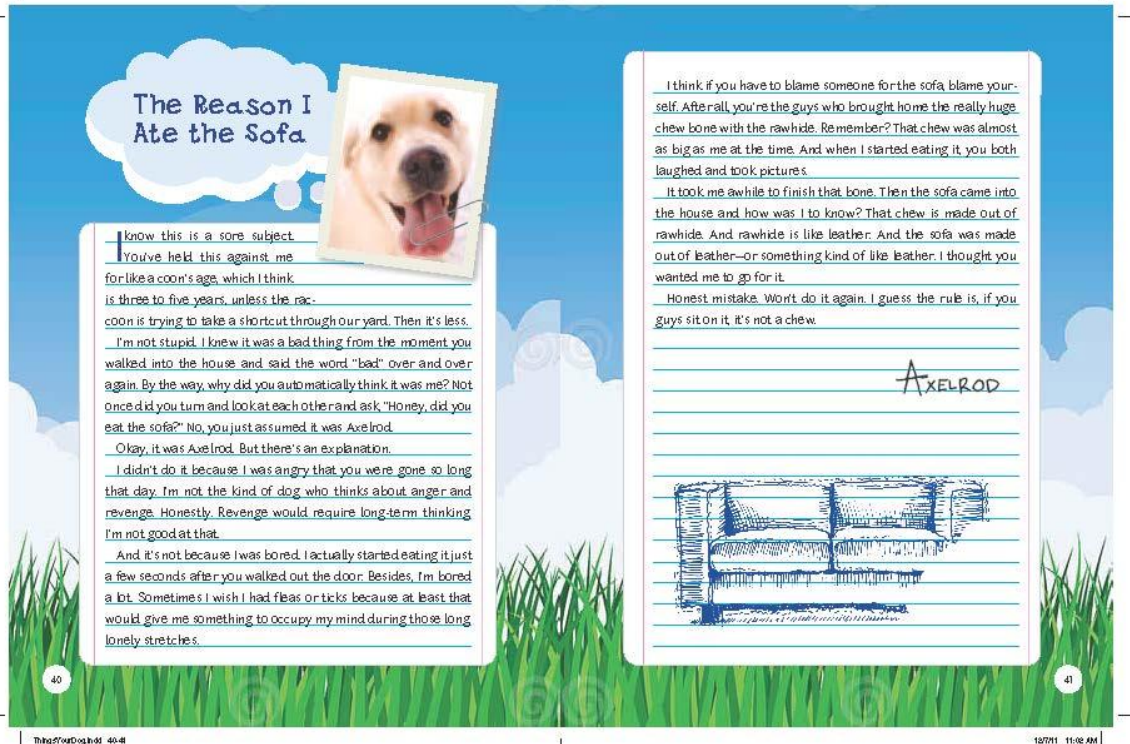 The Reason I
Ate the Sofa
I know this is a sore subject.
You've held this against me
for like a coon's age, which I think
is three to five years, unless the rac-
coon is trying to take a shortcut through our yard. Then it's less.
I'm not stupid. I knew it was a bad thing from the moment you
walked into the house and said the word "bad" over and over
again. By the way, why did you automatically think it was me? Not
once did you turn and look at each other and ask, "Honey, did you
eat the sofa?" No, you just assumed it was Axelrod.
Okay, it was Axelrod. But there's an explanation.
I didn't do it because I was angry that you were gone so long
that day. I'm not the kind of dog who thinks about anger and
revenge. Honestly. Revenge would require long-term thinking
I'm not good at that.
And it's not because I was bored. I actually started eating it just
a few seconds after you walked out the door. Besides, I'm bored
a lot. Sometimes I wish I had fleas or ticks because at least that
would give me something to occupy my mind during those long
lonely stretches.
40
I think if you have to blame someone for the sofa, blame your-
self. After all, you're the guys who brought home the really huge
chew bone with the rawhide. Remember? That chew was almost
as big as me at the time. And when I started eating it, you both
laughed and took pictures.
It took me awhile to finish that bone. Then the sofa came into
the house and how was I to know? That chew is made out of
rawhide. And rawhide is like leather. And the sofa was made
out of leather—or something kind of like leather. I thought you
wanted me to go for it.
Honest mistake. Won't do it again. I guess the rule is, if you
guys sit on it, it's not a chew.
AXELROD
41
ThingsYourDog.indd 40-41
12/7/11 11:02 AM